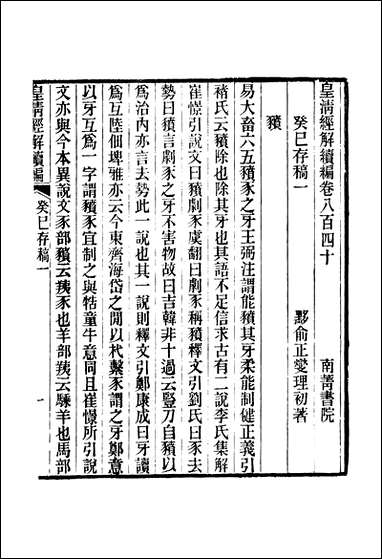 皇清經解續編卷八百四十
南菁書院
癸巳存稿一
黟俞正燮理初著
豶
易大畜六五豶豕之牙王弼注謂能豶其牙柔能制健正義引
褚氏云豶除也除其牙也其語不足信求古有二說李氏集解
崔憬引說文曰豶豕劇翻曰劇豕稱豶釋文引劉氏曰豕去
勢曰豶言劇豕之牙不害物故曰吉韓非十過云豎刀自豶以
爲治内亦言去勢此一說也其一說則釋文引鄭康成曰牙讀
爲互陸佃埤雅亦云今東齊海岱之閒以杙繫豕謂之牙鄭意
以牙互爲一字謂豶豕宜制之與牿童牛意同且崔憬所引說
文亦與今本異說文豕部豶云羠豕也羊部羠云騬羊也馬部
皇清經解續編
癸巳存稿一
一